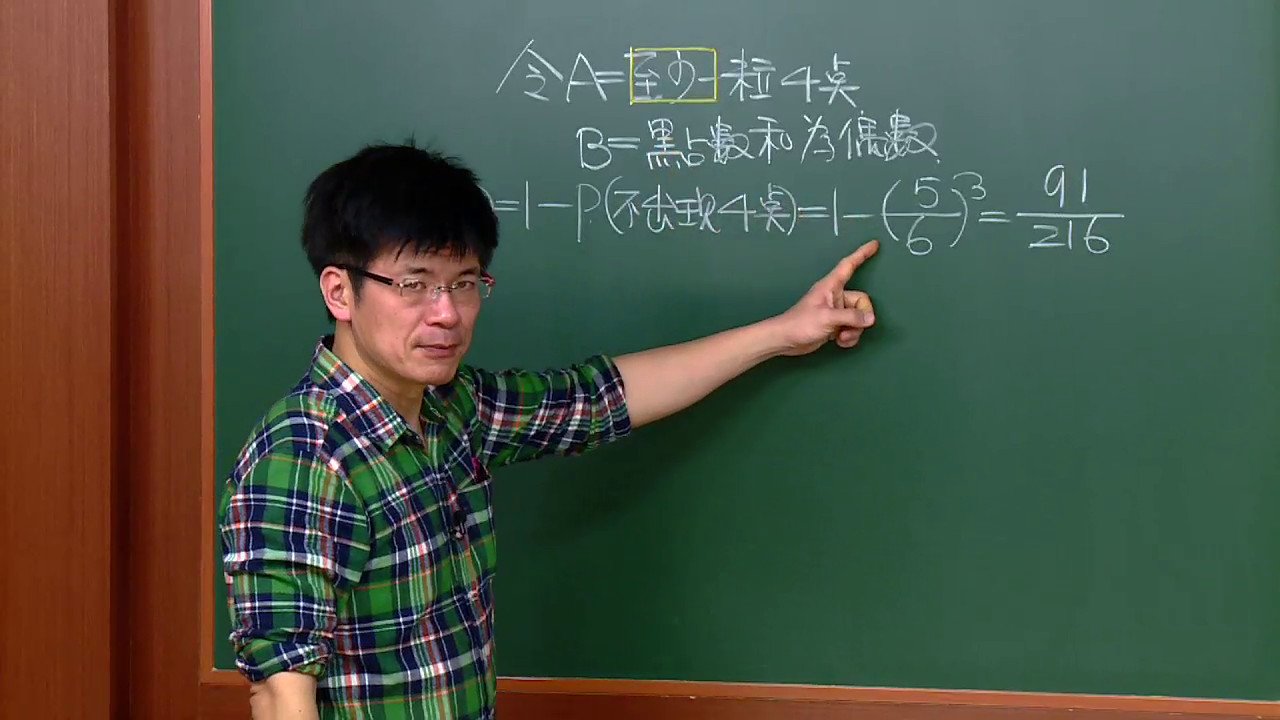 令A=至少一粒4点
B=黑點數和為偶數
=1-P(不出现4点)=1-(5/6)^3=91/216